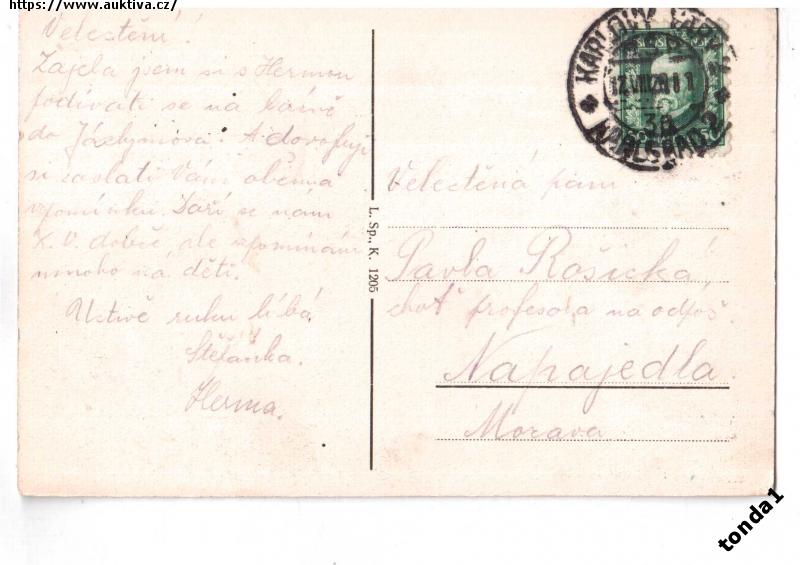 https://www.auktiva.cz/
Velectění!
Zajela jsem si s Hermou
podívati se na báně
do Jáchymova. A dovoluji
si zaslati Vám oběma
vzpomínku. Daří se nám
K. V. dobře, ale vzpomínám
mnoho na děti.
Uctivě ruku líbá
Štefanka.
Herma.
L. Sp., K. 1205
KARLOVY VARY 2
12.VIII.26 11
3a
KARLSBAD 2
Velectěná paní
Pavla Rošická,
choť profesora na odpoč.
Napajedla
Morava
tonda1